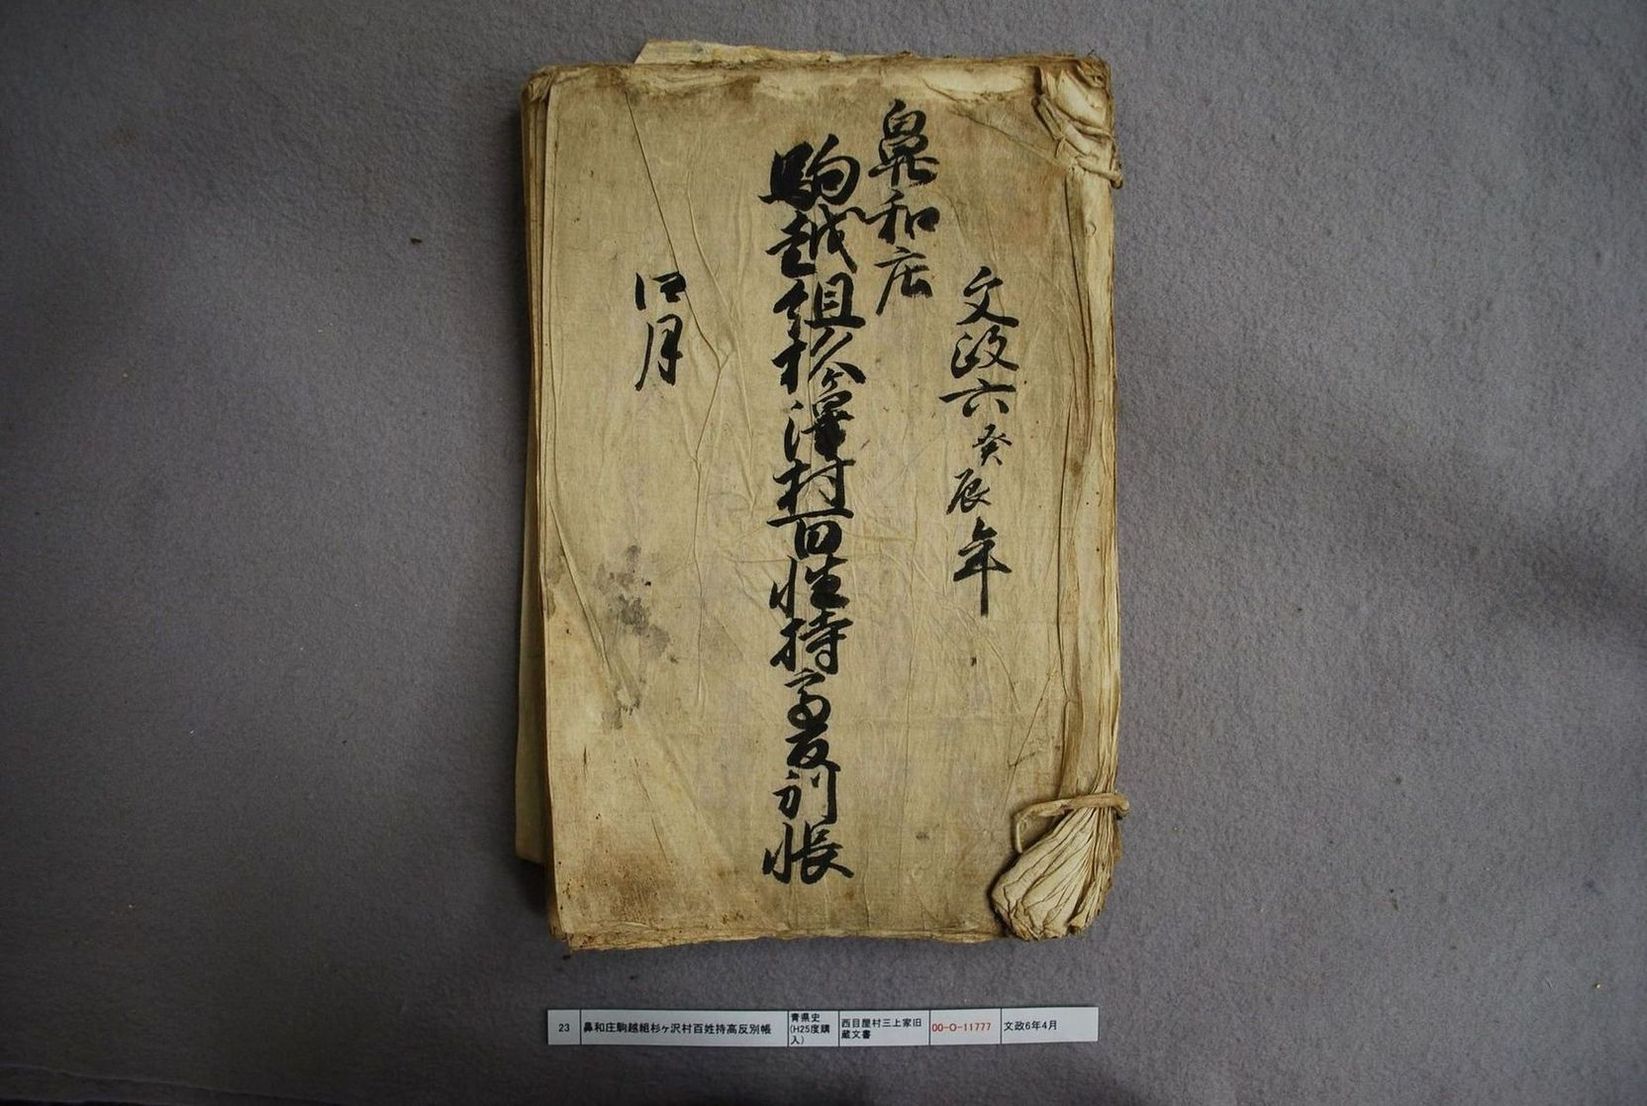 文政六癸辰年
鼻和庄
駒越組杉ヶ澤村百姓持高反別帳
四月
23
鼻和庄駒越組杉ヶ沢村百姓持高反別帳
青県史
(H25度購
入)
西目屋村三上家旧
蔵文書
00-O-11777
文政6年4月